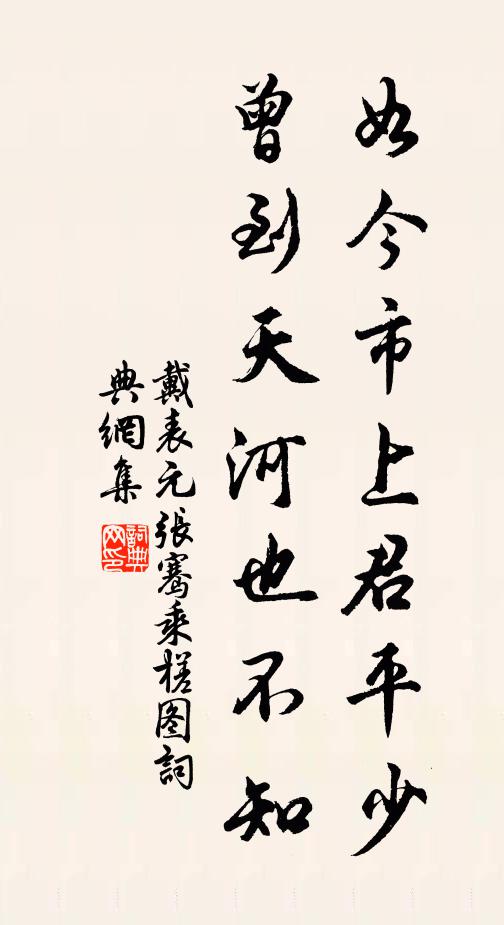 如今市上君平少
曾到天河也不知
戴表元張騫乘槎圖詞
典網集
詞典
网印